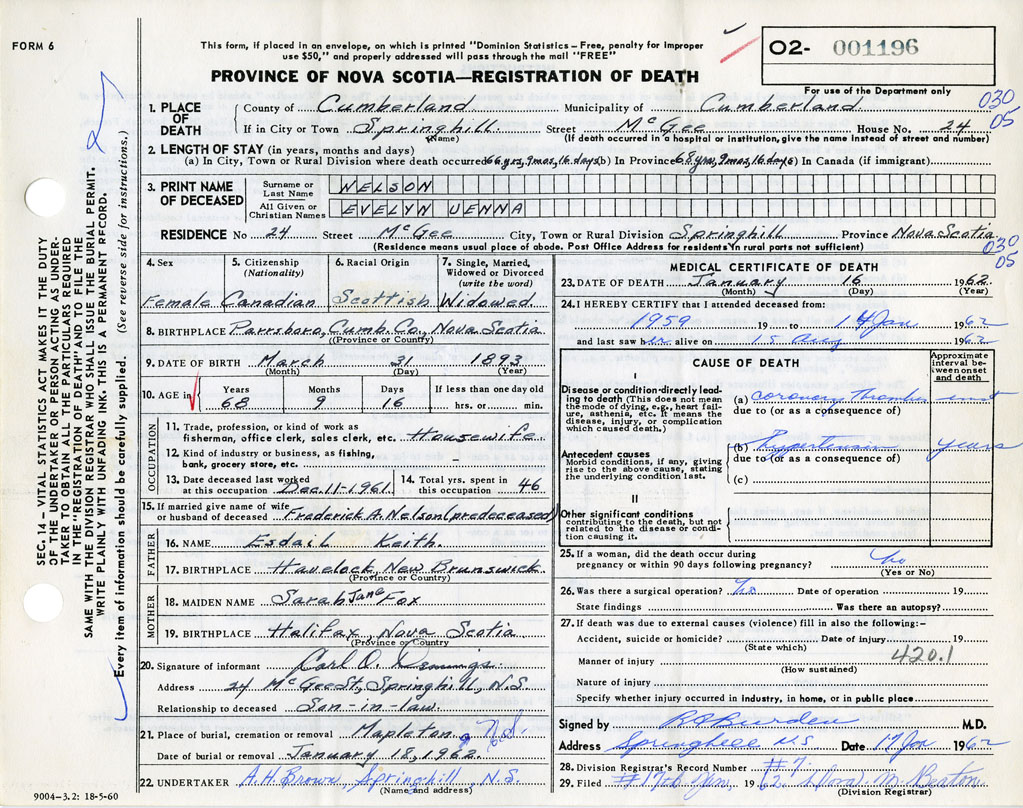 FORM 6
This form, if placed in an envelope, on which is printed "Dominion Statistics – Free, penalty for improper
use $50," and properly addressed will pass through the mail "FREE"
O2- 001196
For use of the Department only
PROVINCE OF NOVA SCOTIA—REGISTRATION OF DEATH
SEC. 14 – VITAL STATISTICS ACT MAKES IT THE DUTY
OF THE UNDERTAKER OR PERSON ACTING AS UNDER-
TAKER TO OBTAIN ALL THE PARTICULARS REQUIRED
IN THE "REGISTRATION OF DEATH" AND TO FILE THE
SAME WITH THE DIVISION REGISTRAR WHO SHALL ISSUE THE BURIAL PERMIT.
WRITE PLAINLY WITH UNFADING INK. THIS IS A PERMANENT RECORD.
Every item of information should be carefully supplied. (See reverse side for instructions.)
1. PLACE OF DEATH
County of Cumberland Municipality of Cumberland 030
If in City or Town Springhill Street McGee House No. 24 05
(Name) (If death occurred in a hospital or institution, give the name instead of street and number)
2. LENGTH OF STAY (in years, months and days)
(a) In City, Town or Rural Division where death occurred 66 yrs, 9 mos, 16 days (b) In Province 68 yrs, 9 mos, 16 days (c) In Canada (if immigrant)
3. PRINT NAME OF DECEASED
Surname or Last Name NELSON
All Given or Christian Names EVELYN UENNA
RESIDENCE No 24 Street McGee City, Town or Rural Division Springhill Province Nova Scotia
(Residence means usual place of abode. Post Office Address for residents in rural parts not sufficient)
030
05
4. Sex 5. Citizenship (Nationality) 6. Racial Origin 7. Single, Married, Widowed or Divorced (write the word)
Female Canadian Scottish Widowed
8. BIRTHPLACE Parrsboro, Cumb. Co., Nova Scotia
(Province or Country)
9. DATE OF BIRTH March 31 1893
(Month) (Day) (Year)
10. AGE in Years Months Days If less than one day old
68 9 16 hrs. or min.
OCCUPATION
11. Trade, profession, or kind of work as
fisherman, office clerk, sales clerk, etc. Housewife
12. Kind of industry or business, as fishing,
bank, grocery store, etc. –
13. Date deceased last worked
at this occupation Dec. 11-1961
14. Total yrs. spent in
this occupation 46
15. If married give name of wife
or husband of deceased Frederick A. Nelson (predeceased)
FATHER
16. NAME Esdail Keith
17. BIRTHPLACE Havelock, New Brunswick
(Province or Country)
MOTHER
18. MAIDEN NAME Sarah Jane Fox
19. BIRTHPLACE Halifax, Nova Scotia
(Province or Country
20. Signature of informant Carl O. Demings
Address 24 McGee St, Springhill, N.S.
Relationship to deceased Son-in-law
21. Place of burial, cremation or removal Mapleton, N.S.
Date of burial or removal January 18, 1962
22. UNDERTAKER A.H. Brown, Springhill, N.S.
(Name and address)
9004–3.2: 18-5-60
MEDICAL CERTIFICATE OF DEATH
23. DATE OF DEATH January 16 1962
(Month) (Day) (Year)
24. I HEREBY CERTIFY that I attended deceased from:
1959 19 to 14 Jan 1962
and last saw her alive on 15 1962
CAUSE OF DEATH
Approximate interval between onset and death
I
Disease or condition directly lead-
ing to death (This does not mean
the mode of dying, e.g., heart fail-
ure, asthenia, etc. It means the
disease, injury, or complication
which caused death.)
(a) coronary thrombosis
due to (or as a consequence of)
Antecedent causes
Morbid conditions, if any, giving
rise to the above cause, stating
the underlying condition last.
(b) Hypertension years
due to (or as a consequence of)
(c)
II
Other significant conditions
contributing to the death, but not
related to the disease or condi-
tion causing it.
25. If a woman, did the death occur during
pregnancy or within 90 days following pregnancy? No
(Yes or No)
26. Was there a surgical operation? No Date of operation 19
State findings Was there an autopsy?
27. If death was due to external causes (violence) fill in also the following:–
Accident, suicide or homicide? Date of injury 19
(State which)
420.1
Manner of injury
(How sustained)
Nature of injury
Specify whether injury occurred in industry, in home, or in public place
Signed by Burden M.D.
Address Springhill N.S. Date 17 Jan 1962
28. Division Registrar's Record Number #7
29. Filed 17th Jan 1962 M. Beaton
(Division Registrar)